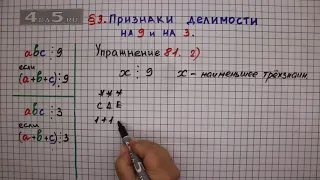 4 из 5.ru
§3. Признаки делимости
на 9 и на 3.
abc ⋮ 9
если
(a+b+c) ⋮ 9
abc ⋮ 3
если
(a+b+c) ⋮ 3
Упражнение 81. 2)
x ⋮ 9 x - наименьшее трёхзначн
* * *
C Д Е
1 + 1